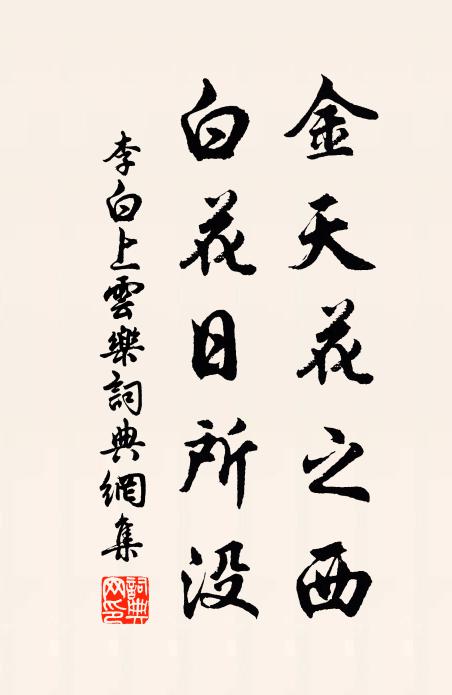 金天花之西
白花日所没
李白上雲樂詞典網集
詞典網印